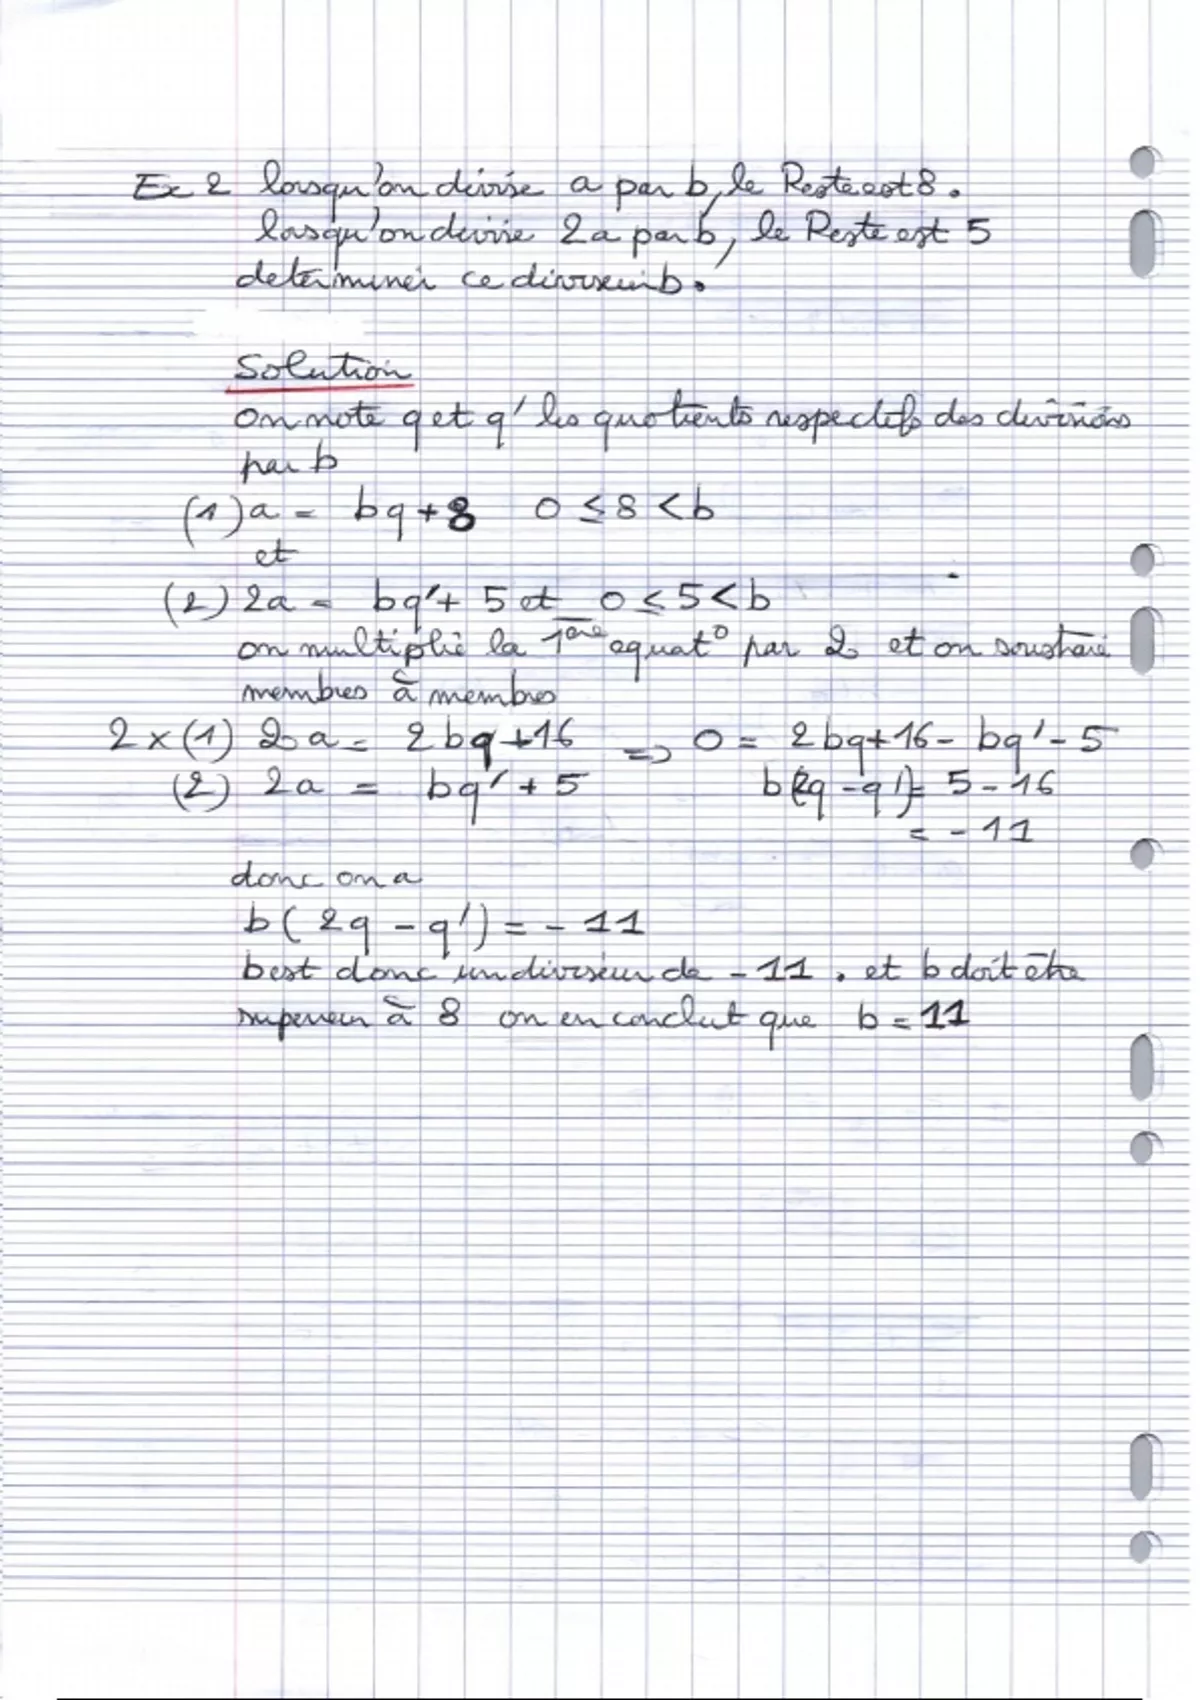 Ex 2 lorsqu'on divise a par b, le Reste est 8.
lorsqu'on divise 2a par b, le Reste est 5
determiner ce diviseur b.
Solution
on note q et q' les quotients respectifs des divisions
par b
(1) a = bq + 8 0 ≤ 8 < b
et
(2) 2a = bq' + 5 et 0 ≤ 5 < b
on multiplie la 1ere equat° par 2 et on soustrait
membres à membres
2 × (1) 2a = 2bq + 16 => 0 = 2bq + 16 - bq' - 5
(2) 2a = bq' + 5 b(2q - q') = 5 - 16
= - 11
donc on a
b( 2q - q') = - 11
b est donc un diviseur de - 11 . et b doit être
superieur à 8 on en conclut que b = 11